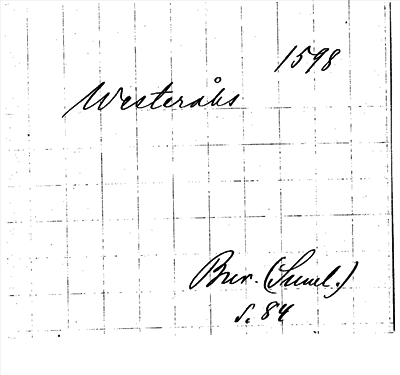 1598
Westeråhs
Bur. (Sumel.)
s. 84